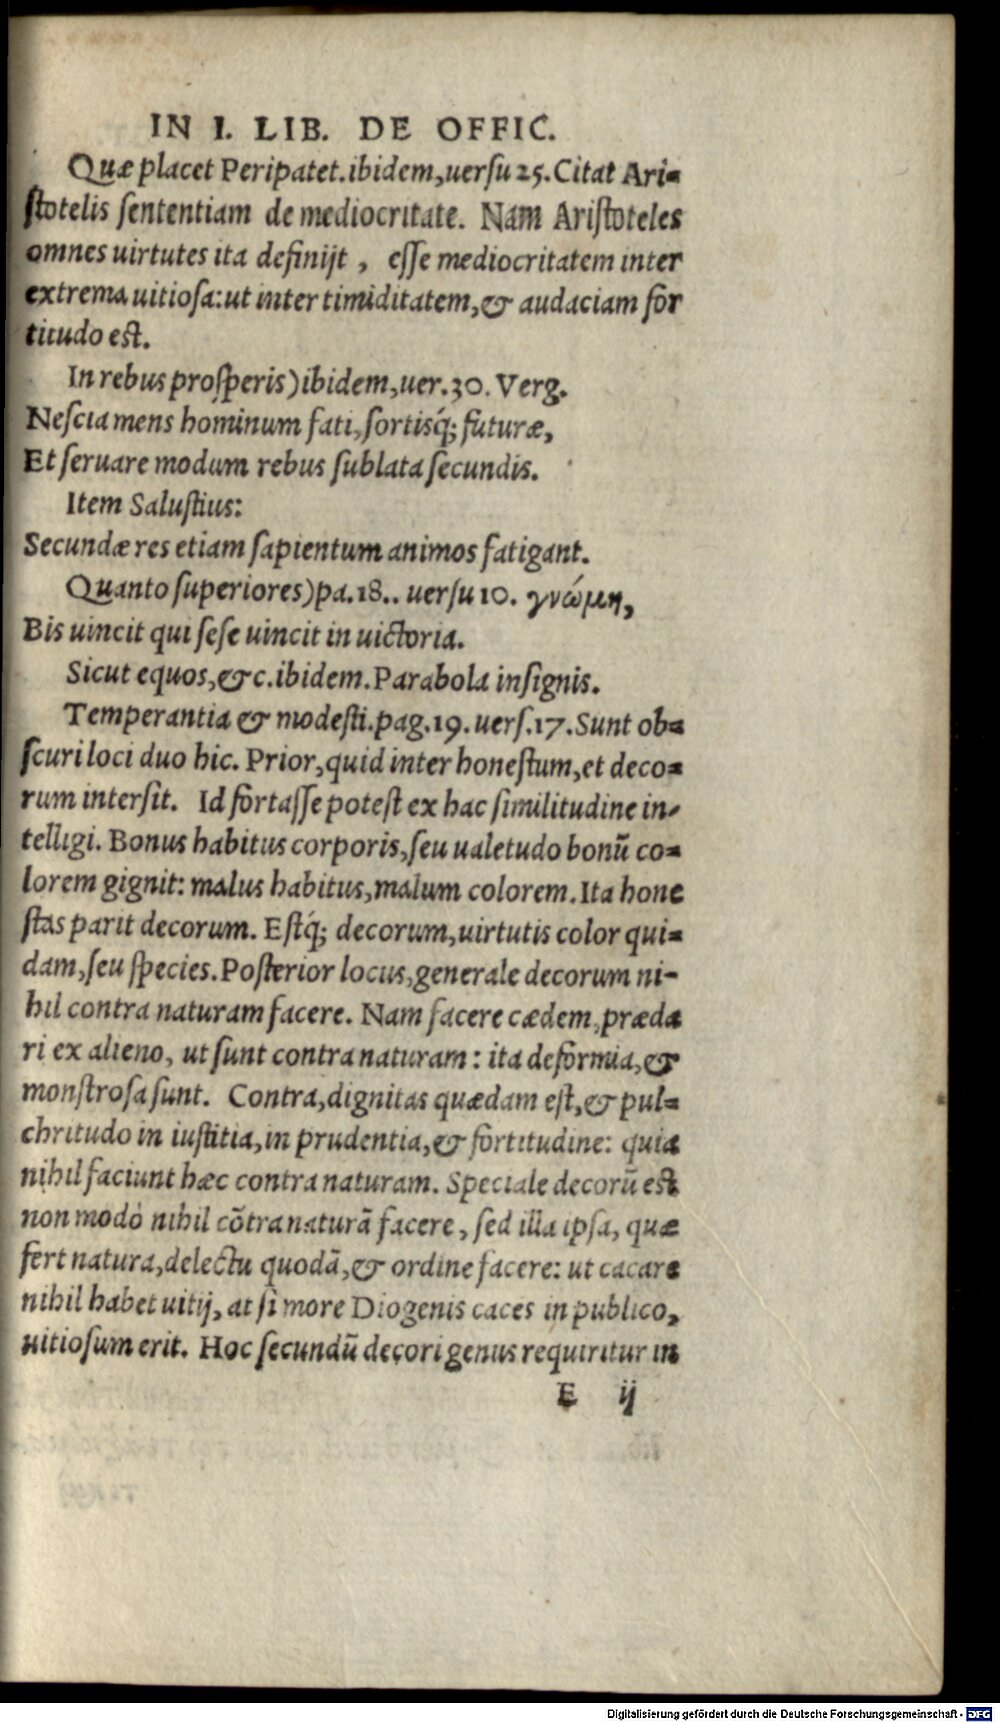 IN I. LIB. DE OFFIC.
Quæ placet Peripatet. ibidem, uerſu 25. Citat Ari-
ſtotelis ſententiam de mediocritate. Nam Ariſtoteles
omnes uirtutes ita definijt, eſſe mediocritatem inter
extrema uitioſa: ut inter timiditatem, & audaciam for
titudo eſt.
In rebus proſperis) ibidem, uer. 30. Verg.
Neſcia mens hominum fati, ſortisq́; futuræ,
Et ſeruare modum rebus ſublata ſecundis.
Item Saluſtius:
Secundæ res etiam ſapientum animos fatigant.
Quanto ſuperiores) pa. 18.. uerſu 10. γνώμη,
Bis uincit qui ſeſe uincit in uictoria.
Sicut equos, &c. ibidem. Parabola inſignis.
Temperantia & modeſti. pag. 19. uerſ. 17. Sunt ob-
ſcuri loci duo hic. Prior, quid inter honeſtum, et deco-
rum interſit. Id fortaſſe poteſt ex hac ſimilitudine in-
telligi. Bonus habitus corporis, ſeu ualetudo bonũ co-
lorem gignit: malus habitus, malum colorem. Ita hone
ſtas parit decorum. Eſtq́; decorum, uirtutis color qui-
dam, ſeu ſpecies. Poſterior locus, generale decorum ni-
hil contra naturam facere. Nam facere cædem, præda
ri ex alieno, ut ſunt contra naturam: ita deformia, &
monſtroſa ſunt. Contra, dignitas quædam eſt, & pul-
chritudo in iuſtitia, in prudentia, & fortitudine: quia
nihil faciunt hæc contra naturam. Speciale decorũ eſt
non modò nihil cõtra naturã facere, ſed illa ipſa, quæ
fert natura, delectu quodã, & ordine facere: ut cacare
nihil habet uitij, at ſi more Diogenis caces in publico,
uitioſum erit. Hoc ſecundũ decori genus requiritur in
E ij
Digitalisierung gefördert durch die Deutsche Forschungsgemeinschaft - DFG